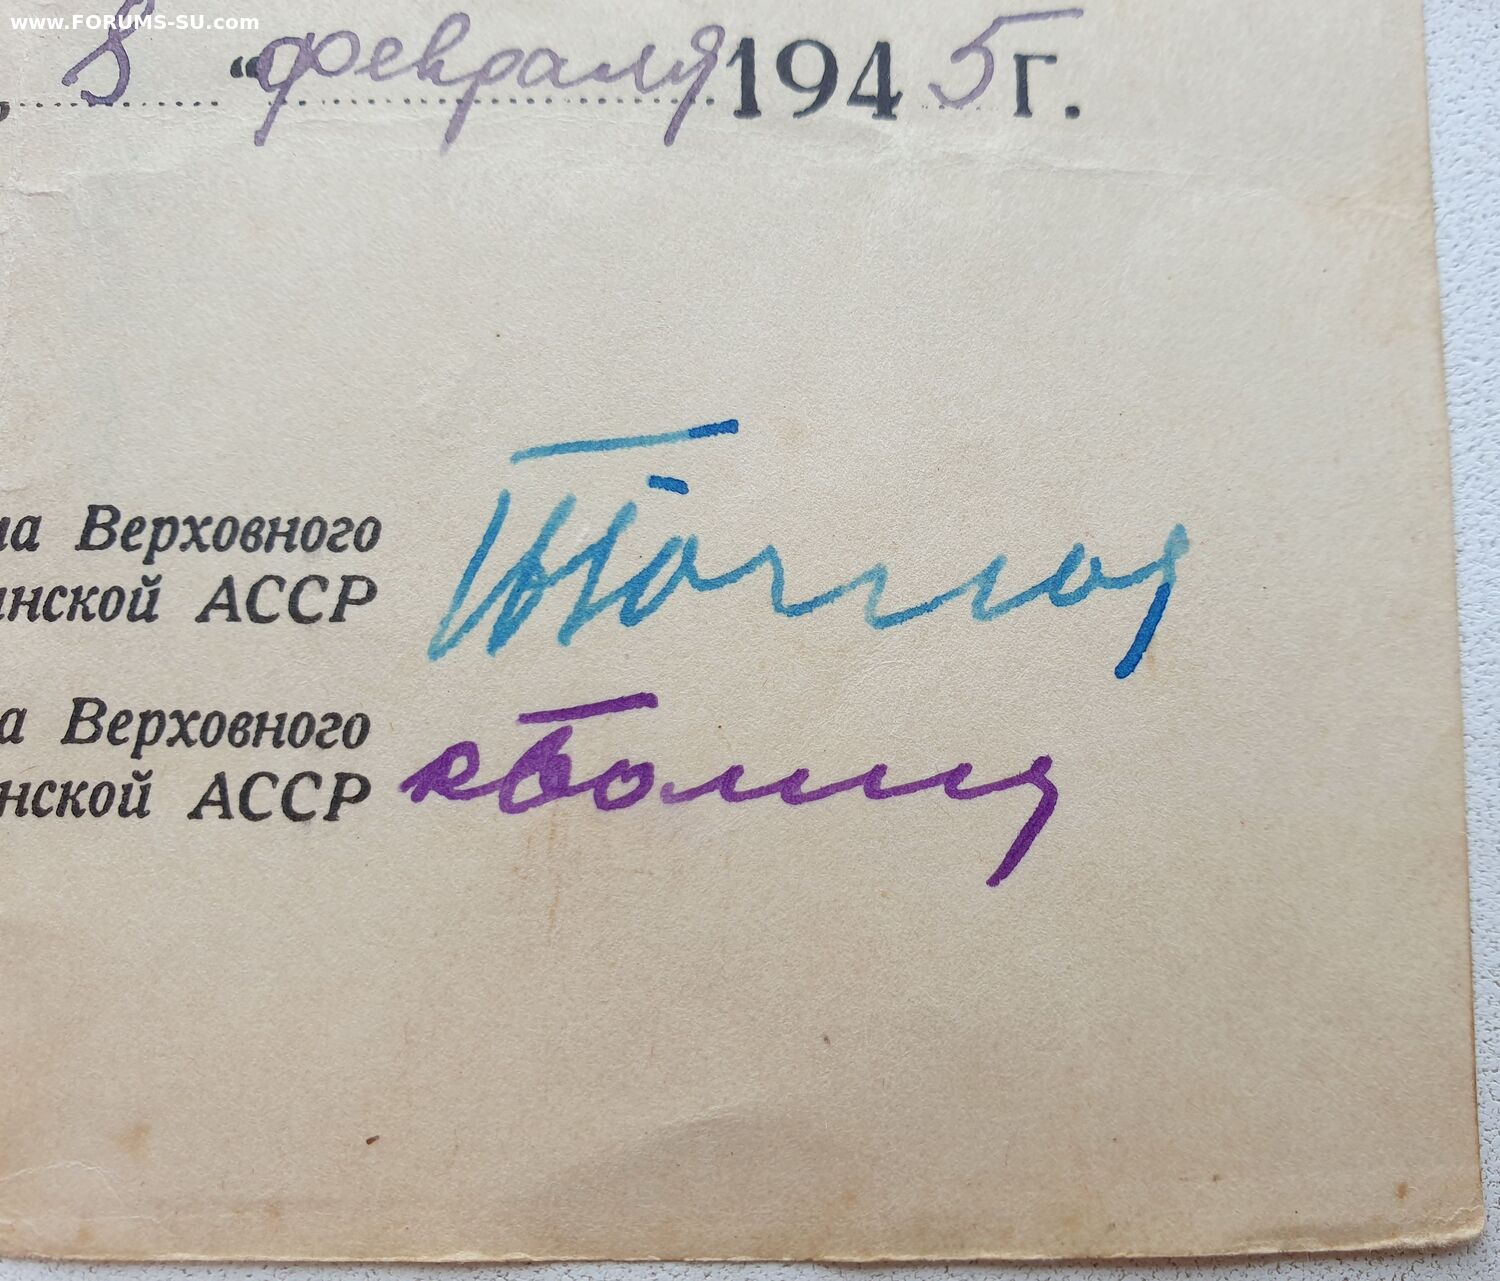 www.FORUMS-SU.com
8 "февраля 1945 г.
на Верховного
инской АССР
на Верховного
инской АССР